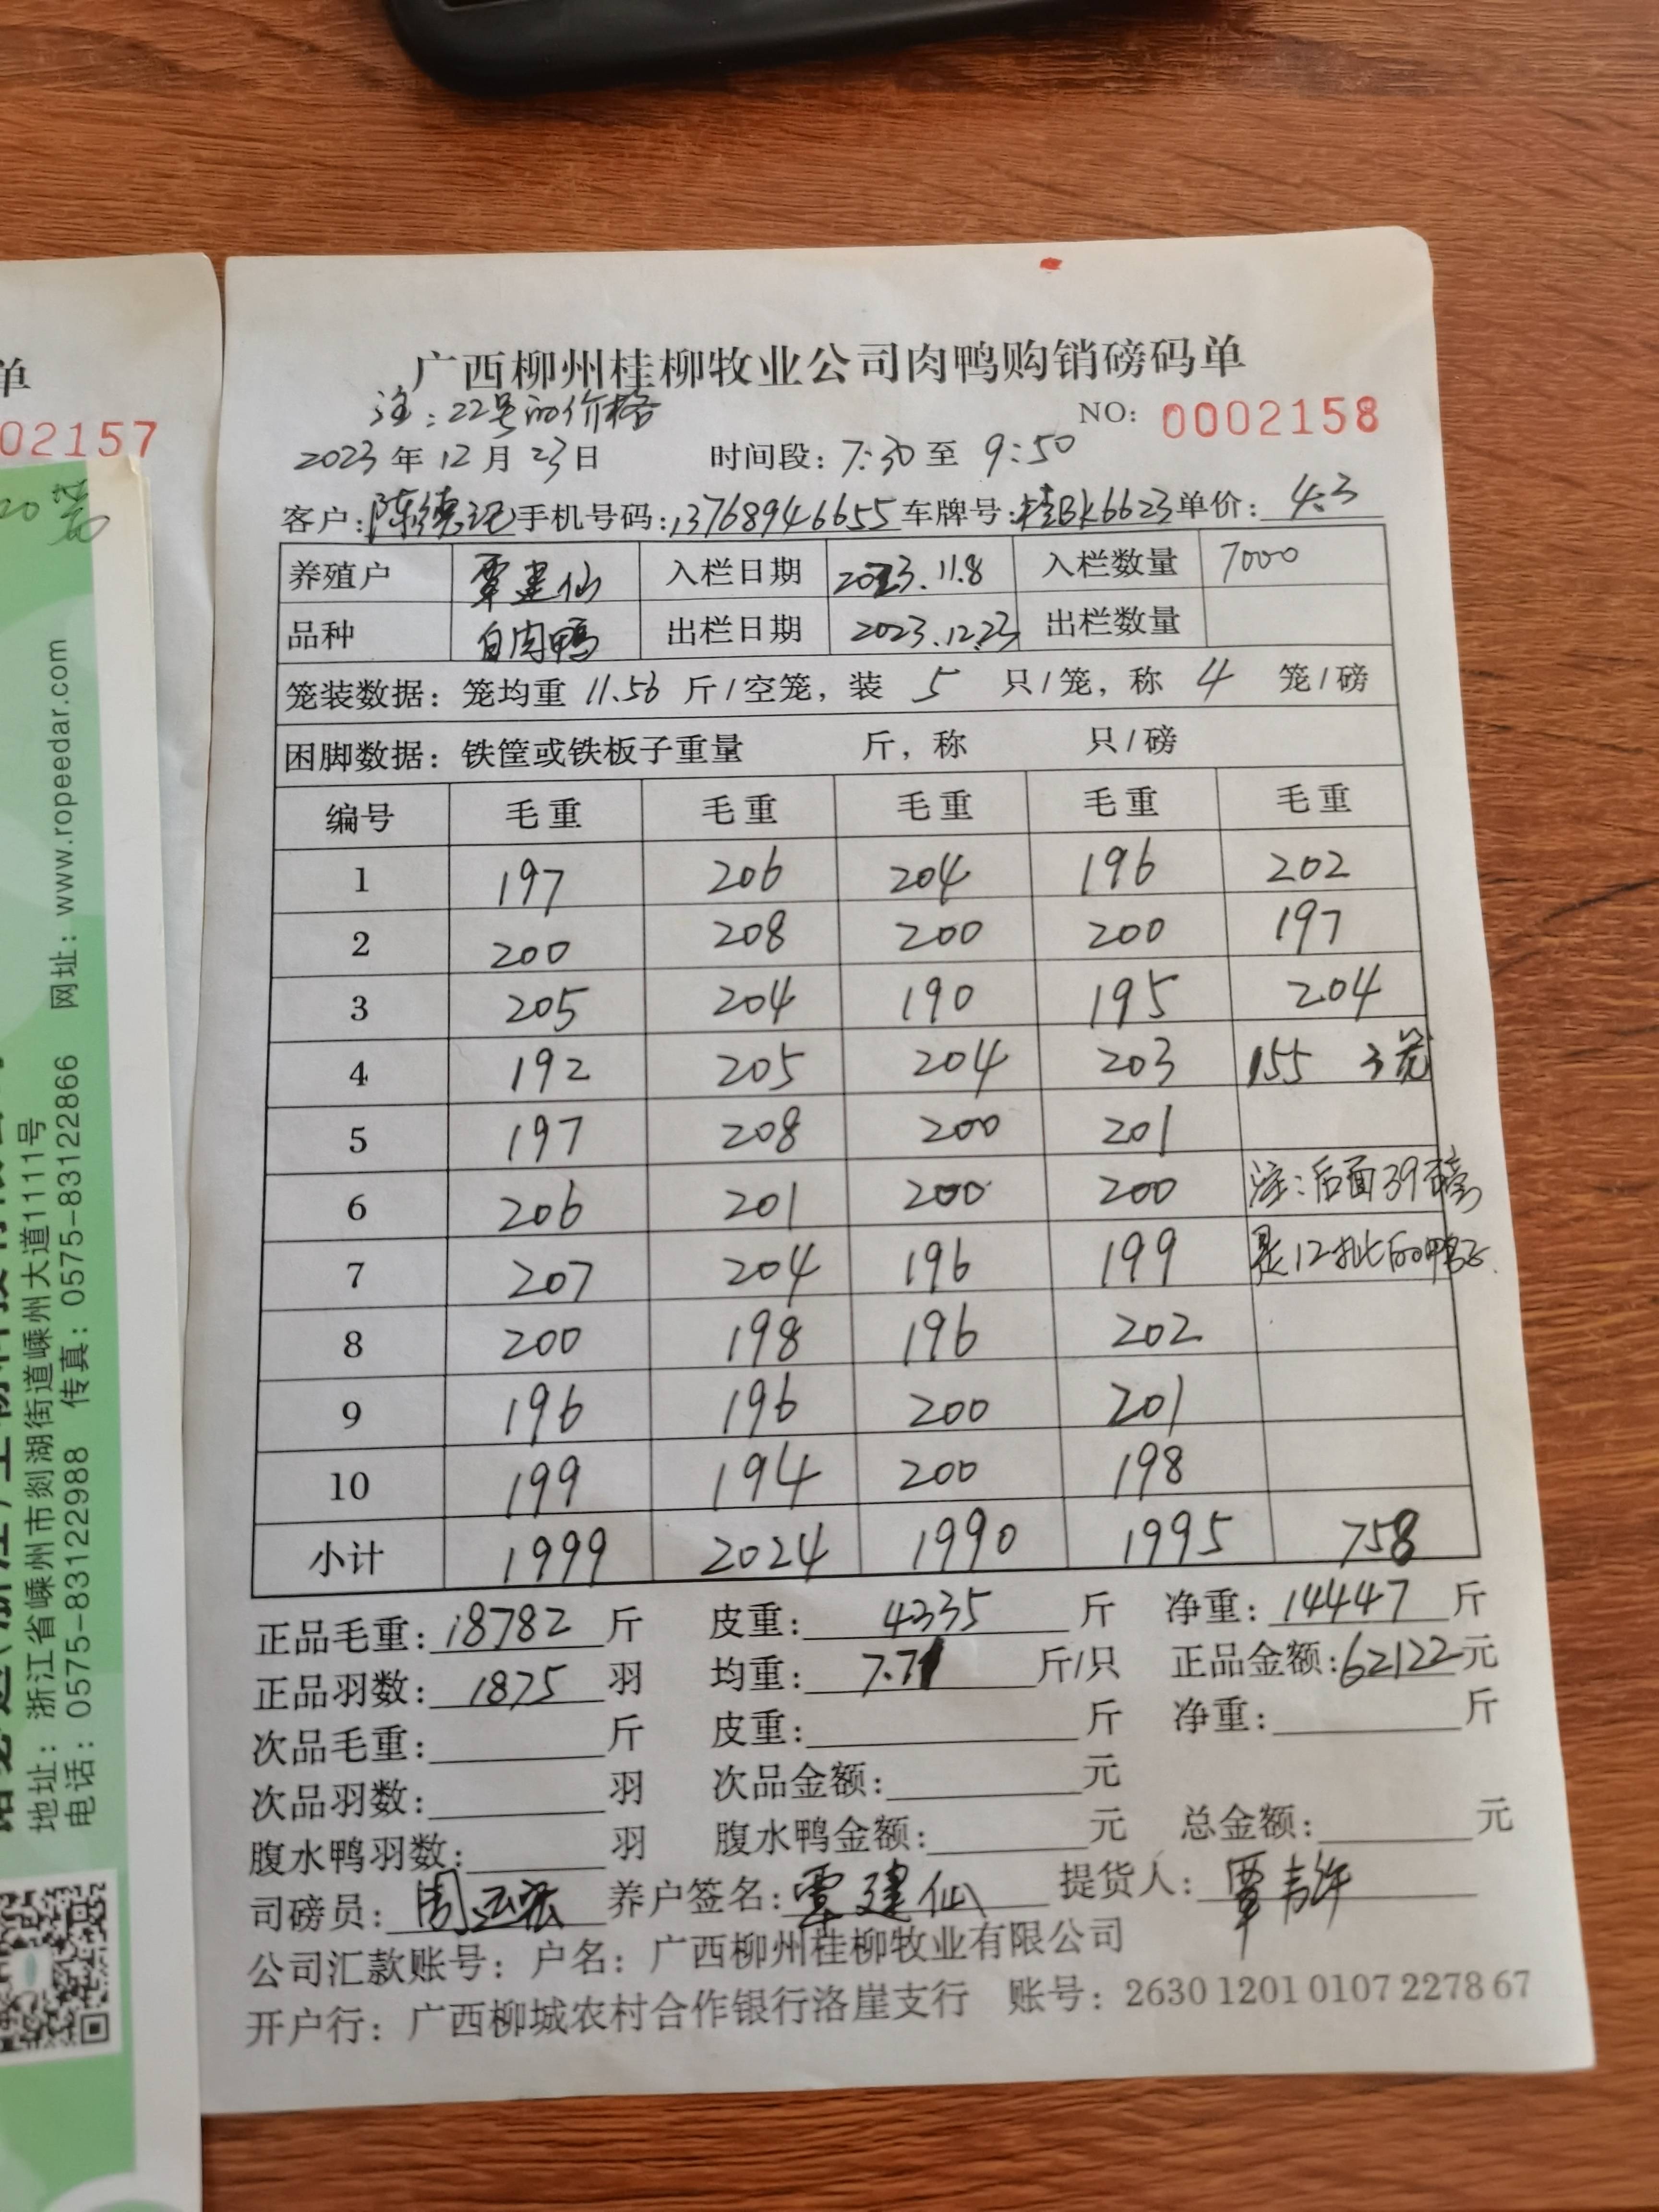 广西柳州桂柳牧业公司肉鸭购销磅码单
注:22号的价格
NO: 0002158
2023年12月23日 时间段:7:30至9:50
客户:陈德 手机号码:13768946655 车牌号:桂BK6623 单价:4.3
养殖户 覃建仙 入栏日期 2023.11.8 入栏数量 7000
品种 白肉鸭 出栏日期 2023.12.23 出栏数量
笼装数据:笼均重 11.56 斤/空笼,装 5 只/笼,称 4 笼/磅
困脚数据:铁筐或铁板子重量 斤,称 只/磅
编号 毛重 毛重 毛重 毛重 毛重
1 197 206 204 196 202
2 200 208 200 200 197
3 205 204 190 195 204
4 192 205 204 203 155 3笼
5 197 208 200 201
6 206 201 200 200 注:后面39磅
7 207 204 196 199 是12批的鸭子.
8 200 198 196 202
9 196 196 200 201
10 199 194 200 198
小计 1999 2024 1990 1995 758
正品毛重:18782斤 皮重:4335斤 净重:14447斤
正品羽数:1875羽 均重:7.71斤/只 正品金额:62122元
次品毛重: 斤 皮重: 斤 净重: 斤
次品羽数: 羽 次品金额: 元
腹水鸭羽数: 羽 腹水鸭金额: 元 总金额: 元
司磅员:周 养户签名:覃建仙 提货人:覃
公司汇款账号:户名:广西柳州桂柳牧业有限公司
开户行:广西柳城农村合作银行洛崖支行 账号:2630 1201 0107 2278 67
单
02157
网址:www.ropeedar.com
地址:浙江省嵊州市剡湖街道嵊州大道1111号
电话:0575-83122988 传真:0575-83122866